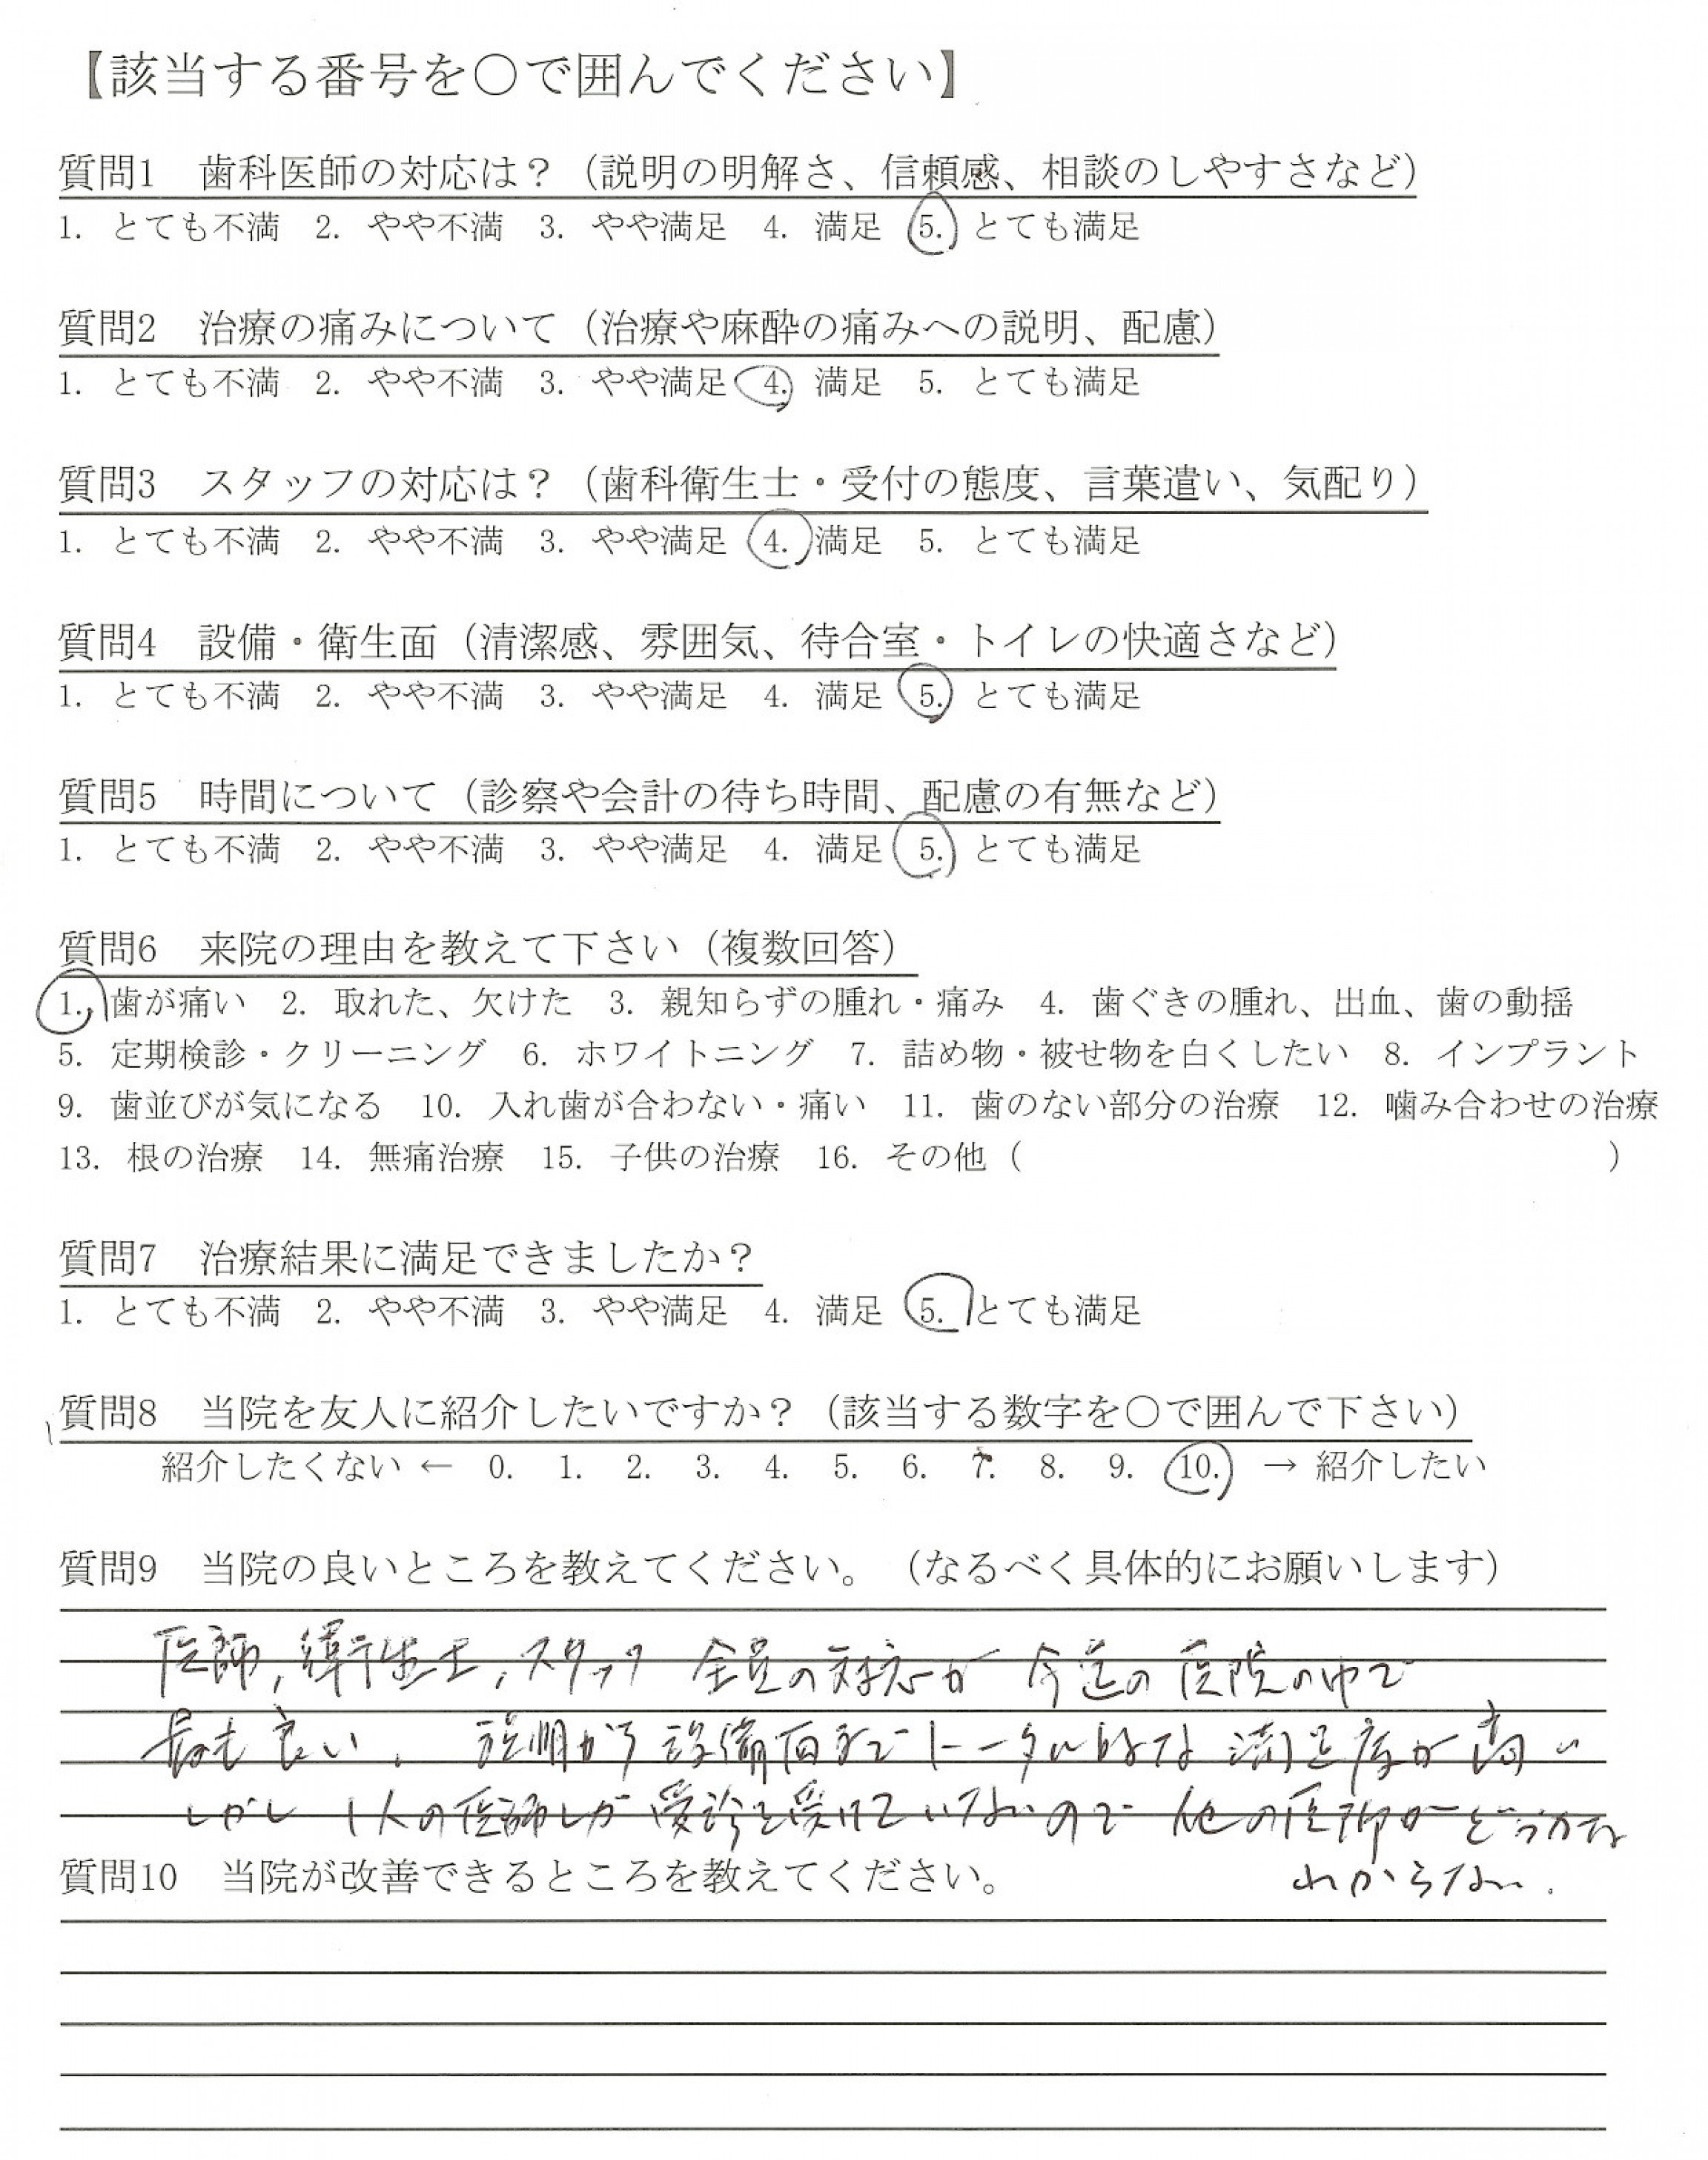 【該当する番号を○で囲んでください】
質問1　歯科医師の対応は？（説明の明解さ、信頼感、相談のしやすさなど）
1. とても不満　2. やや不満　3. やや満足　4. 満足　5. とても満足
質問2　治療の痛みについて（治療や麻酔の痛みへの説明、配慮）
1. とても不満　2. やや不満　3. やや満足　4. 満足　5. とても満足
質問3　スタッフの対応は？（歯科衛生士・受付の態度、言葉遣い、気配り）
1. とても不満　2. やや不満　3. やや満足　4. 満足　5. とても満足
質問4　設備・衛生面（清潔感、雰囲気、待合室・トイレの快適さなど）
1. とても不満　2. やや不満　3. やや満足　4. 満足　5. とても満足
質問5　時間について（診察や会計の待ち時間、配慮の有無など）
1. とても不満　2. やや不満　3. やや満足　4. 満足　5. とても満足
質問6　来院の理由を教えて下さい（複数回答）
1. 歯が痛い　2. 取れた、欠けた　3. 親知らずの腫れ・痛み　4. 歯ぐきの腫れ、出血、歯の動揺
5. 定期検診・クリーニング　6. ホワイトニング　7. 詰め物・被せ物を白くしたい　8. インプラント
9. 歯並びが気になる　10. 入れ歯が合わない・痛い　11. 歯のない部分の治療　12. 噛み合わせの治療
13. 根の治療　14. 無痛治療　15. 子供の治療　16. その他（　　　）
質問7　治療結果に満足できましたか？
1. とても不満　2. やや不満　3. やや満足　4. 満足　5. とても満足
質問8　当院を友人に紹介したいですか？（該当する数字を○で囲んで下さい）
紹介したくない ← 0. 1. 2. 3. 4. 5. 6. 7. 8. 9. 10. → 紹介したい
質問9　当院の良いところを教えてください。（なるべく具体的にお願いします）
医師, 衛生士, スタッフ 全員の対応が 今迄の医院の中で
最も良い. 説明から設備面までトータル的な満足度が高い
しかし 1人の医師しか受診を受けていないので 他の医師がどうかは
わからない.
質問10　当院が改善できるところを教えてください。